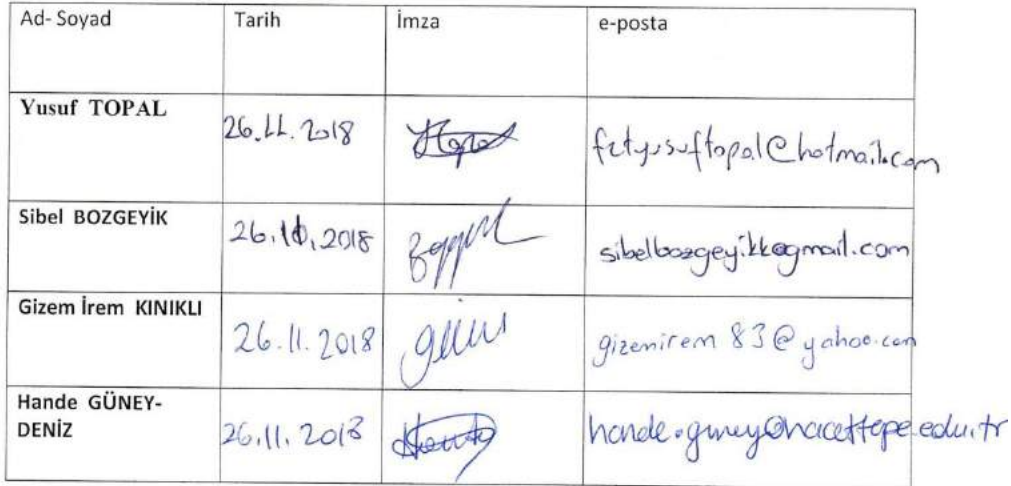 Ad- Soyad Tarih İmza e-posta
Yusuf TOPAL 26.11.2018 fztyusuftopal@hotmail.com
Sibel BOZGEYİK 26.10.2018 sibelbozgeyikk@gmail.com
Gizem İrem KINIKLI 26.11.2018 gizemirem83@yahoo.com
Hande GÜNEY-
DENİZ 26.11.2018 hande.guney@hacettepe.edu.tr